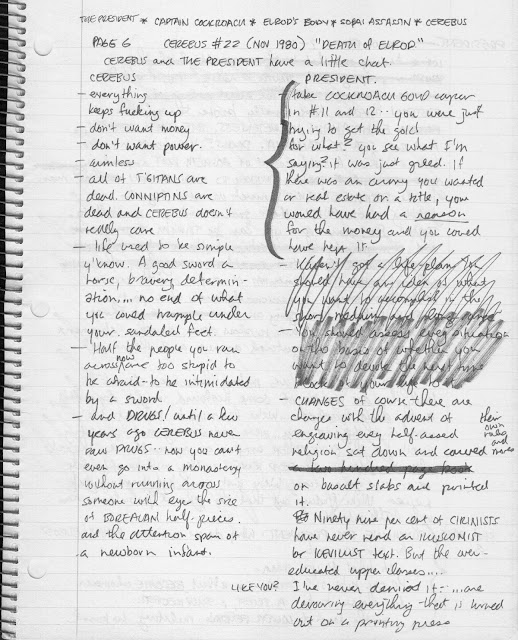 THE PRESIDENT * CAPTAIN COCKROACH * ELROD'S BODY * SOPRI ASSASSIN * CEREBUS
PAGE 6 CEREBUS #22 (NOV 1980) "DEATH OF ELROD"
CEREBUS and THE PRESIDENT have a little chat.
CEREBUS
- everything
keeps fucking up
- don't want money
- don't want power.
- aimless
- all of T'GITANS are
dead. CONNIPTINS are
dead and CEREBUS doesn't
really care
- life used to be simple
y'know. A good sword a
horse, bravery determin-
ation.... no end of what
you could trample under
your sandaled feet
- Half the people you run
across now are too stupid to
be afraid - to be intimidated
by a sword
- and DRUGS! until a few
years ago CEREBUS never
saw DRUGS... now you can't
even go into a monastery
without running across
someone with eyes the size
of BOREALAN half-pieces.
and the attention span of
a newborn infant.
PRESIDENT.
- take COCKROACH GOLD caper
in #11 and 12.. you were just
trying to get the gold
for what? you see what I'm
saying? it was just greed. If
there was an army you wanted
or real estate or a title, you
would have had a reason
for the money and you could
have kept it.
got a life plan
should have an idea of what
you want to accomplish in the
short, medium and long
- You should assess every situation
on the basis of whether you
want to devote the next
of your life to
- CHANGES of course there are
changes with the advent of
engraving every half-assed
religion sat down and carved their own rules and
on basalt slabs and printed
it.
Ninety nine per cent of CIRINISTS
have never read an ILLUSIONIST
or KEVILLIST text. But the over-
educated upper classes....
LIKE YOU? I've never denied it - ...are
devouring everything that is turned
out on a printing press